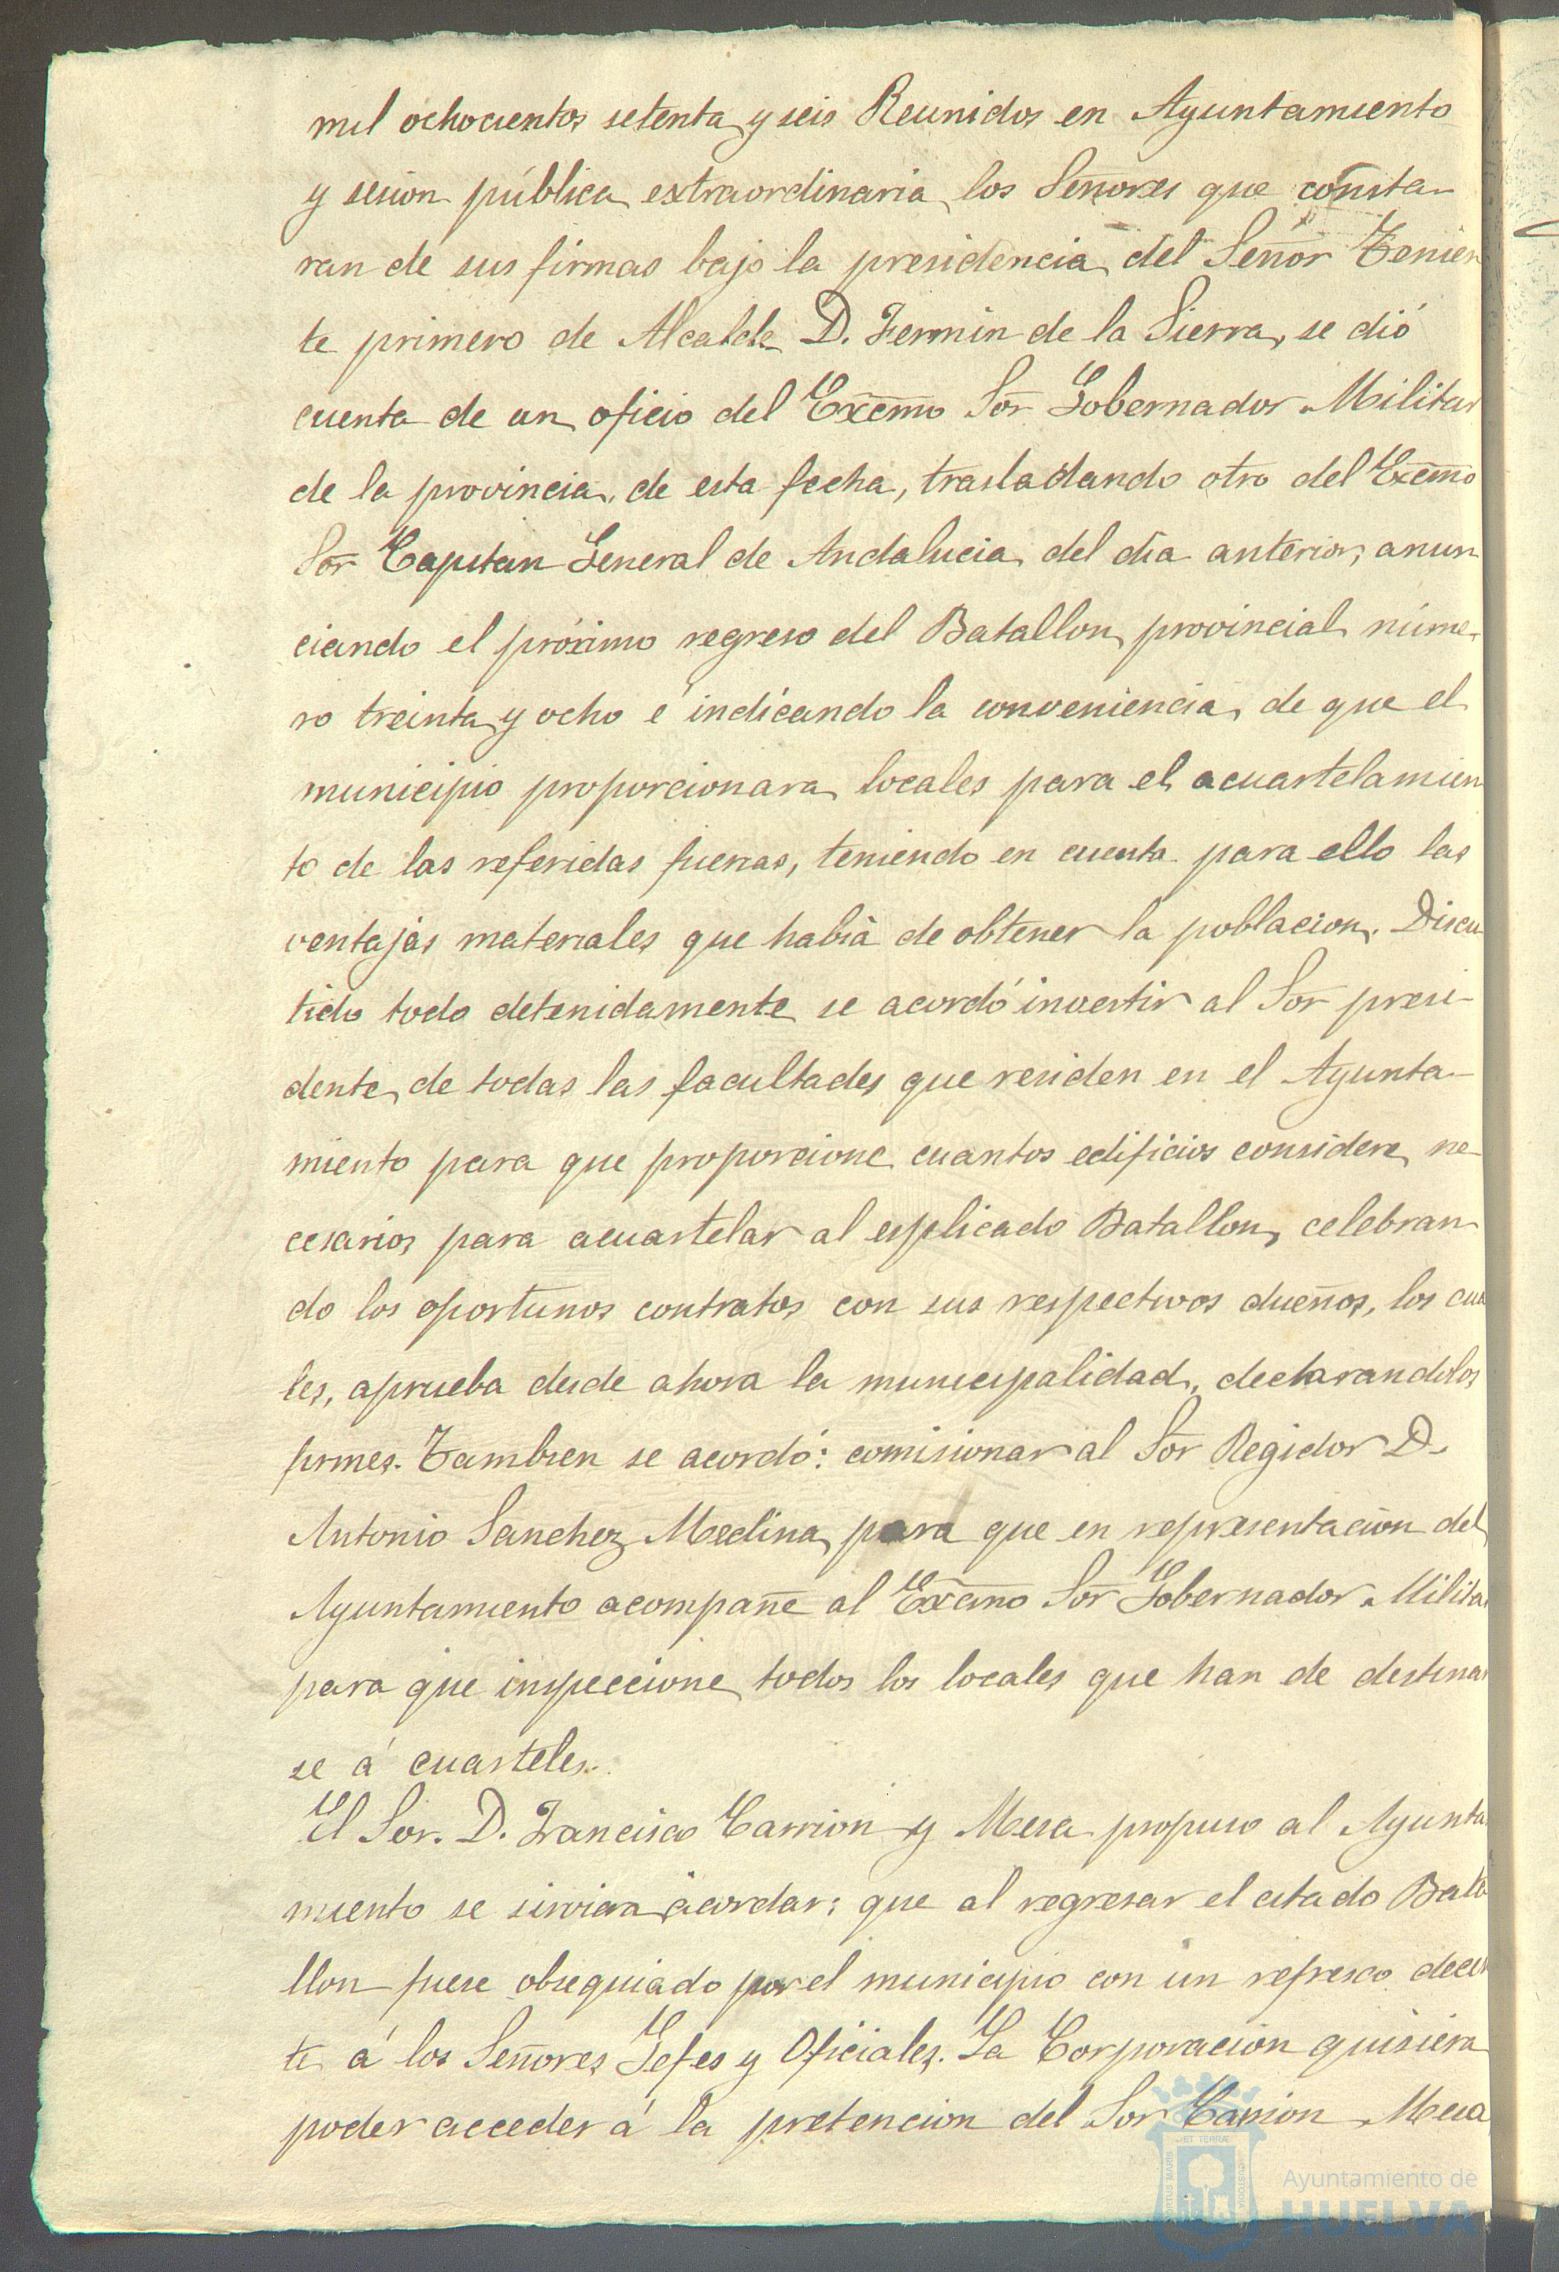 mil ochocientos setenta y seis Reunidos en Ayuntamiento
y sesion pública extraordinaria los Señores que consta-
ran de sus firmas bajo la presidencia del Señor Tenien
te primero de Alcalde D. Fermin de la Sierra, se dió
cuenta de un oficio del Excmo Sor Gobernador Militar
de la provincia, de esta fecha, trasladando otro del Excmo
Sor Capitan General de Andalucia del dia anterior, anun
ciando el próximo regreso del Batallon provincial núme-
ro treinta y ocho é indicando la conveniencia de que el
municipio proporcionara locales para el acuartelamien
to de las referidas fuerzas, teniendo en cuenta para ello las
ventajas materiales que habia de obtener la poblacion. Discu
tido todo detenidamente se acordó investir al Sor presi-
dente de todas las facultades que residen en el Ayunta-
miento para que proporcione cuantos edificios considere ne-
cesarios para acuartelar al esplicado Batallon, celebran-
do los oportunos contratos con sus respectivos dueños, los cua
les, aprueba desde ahora la municipalidad, declarandolos
firmes. Tambien se acordó: comisionar al Sor Regidor D.
Antonio Sanchez Medina para que en representacion del
Ayuntamiento acompañe al Excmo Sor Gobernador Militar
para que inspeccione todos los locales que han de destinar
se á cuarteles.
El Sor. D. Francisco Carrion y Mesa propuso al Ayunta
miento se sirviera acordar: que al regresar el citado Bata
llon fuese obsequiado por el municipio con un refresco decen
te á los Señores Gefes y Oficiales. La Corporacion quisiera
poder acceder á la pretencion del Sor Carrion Mesa
Ayuntamiento de
HUELVA